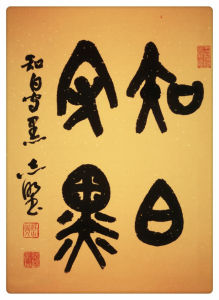 知白
守黑
知白守黑 志坚